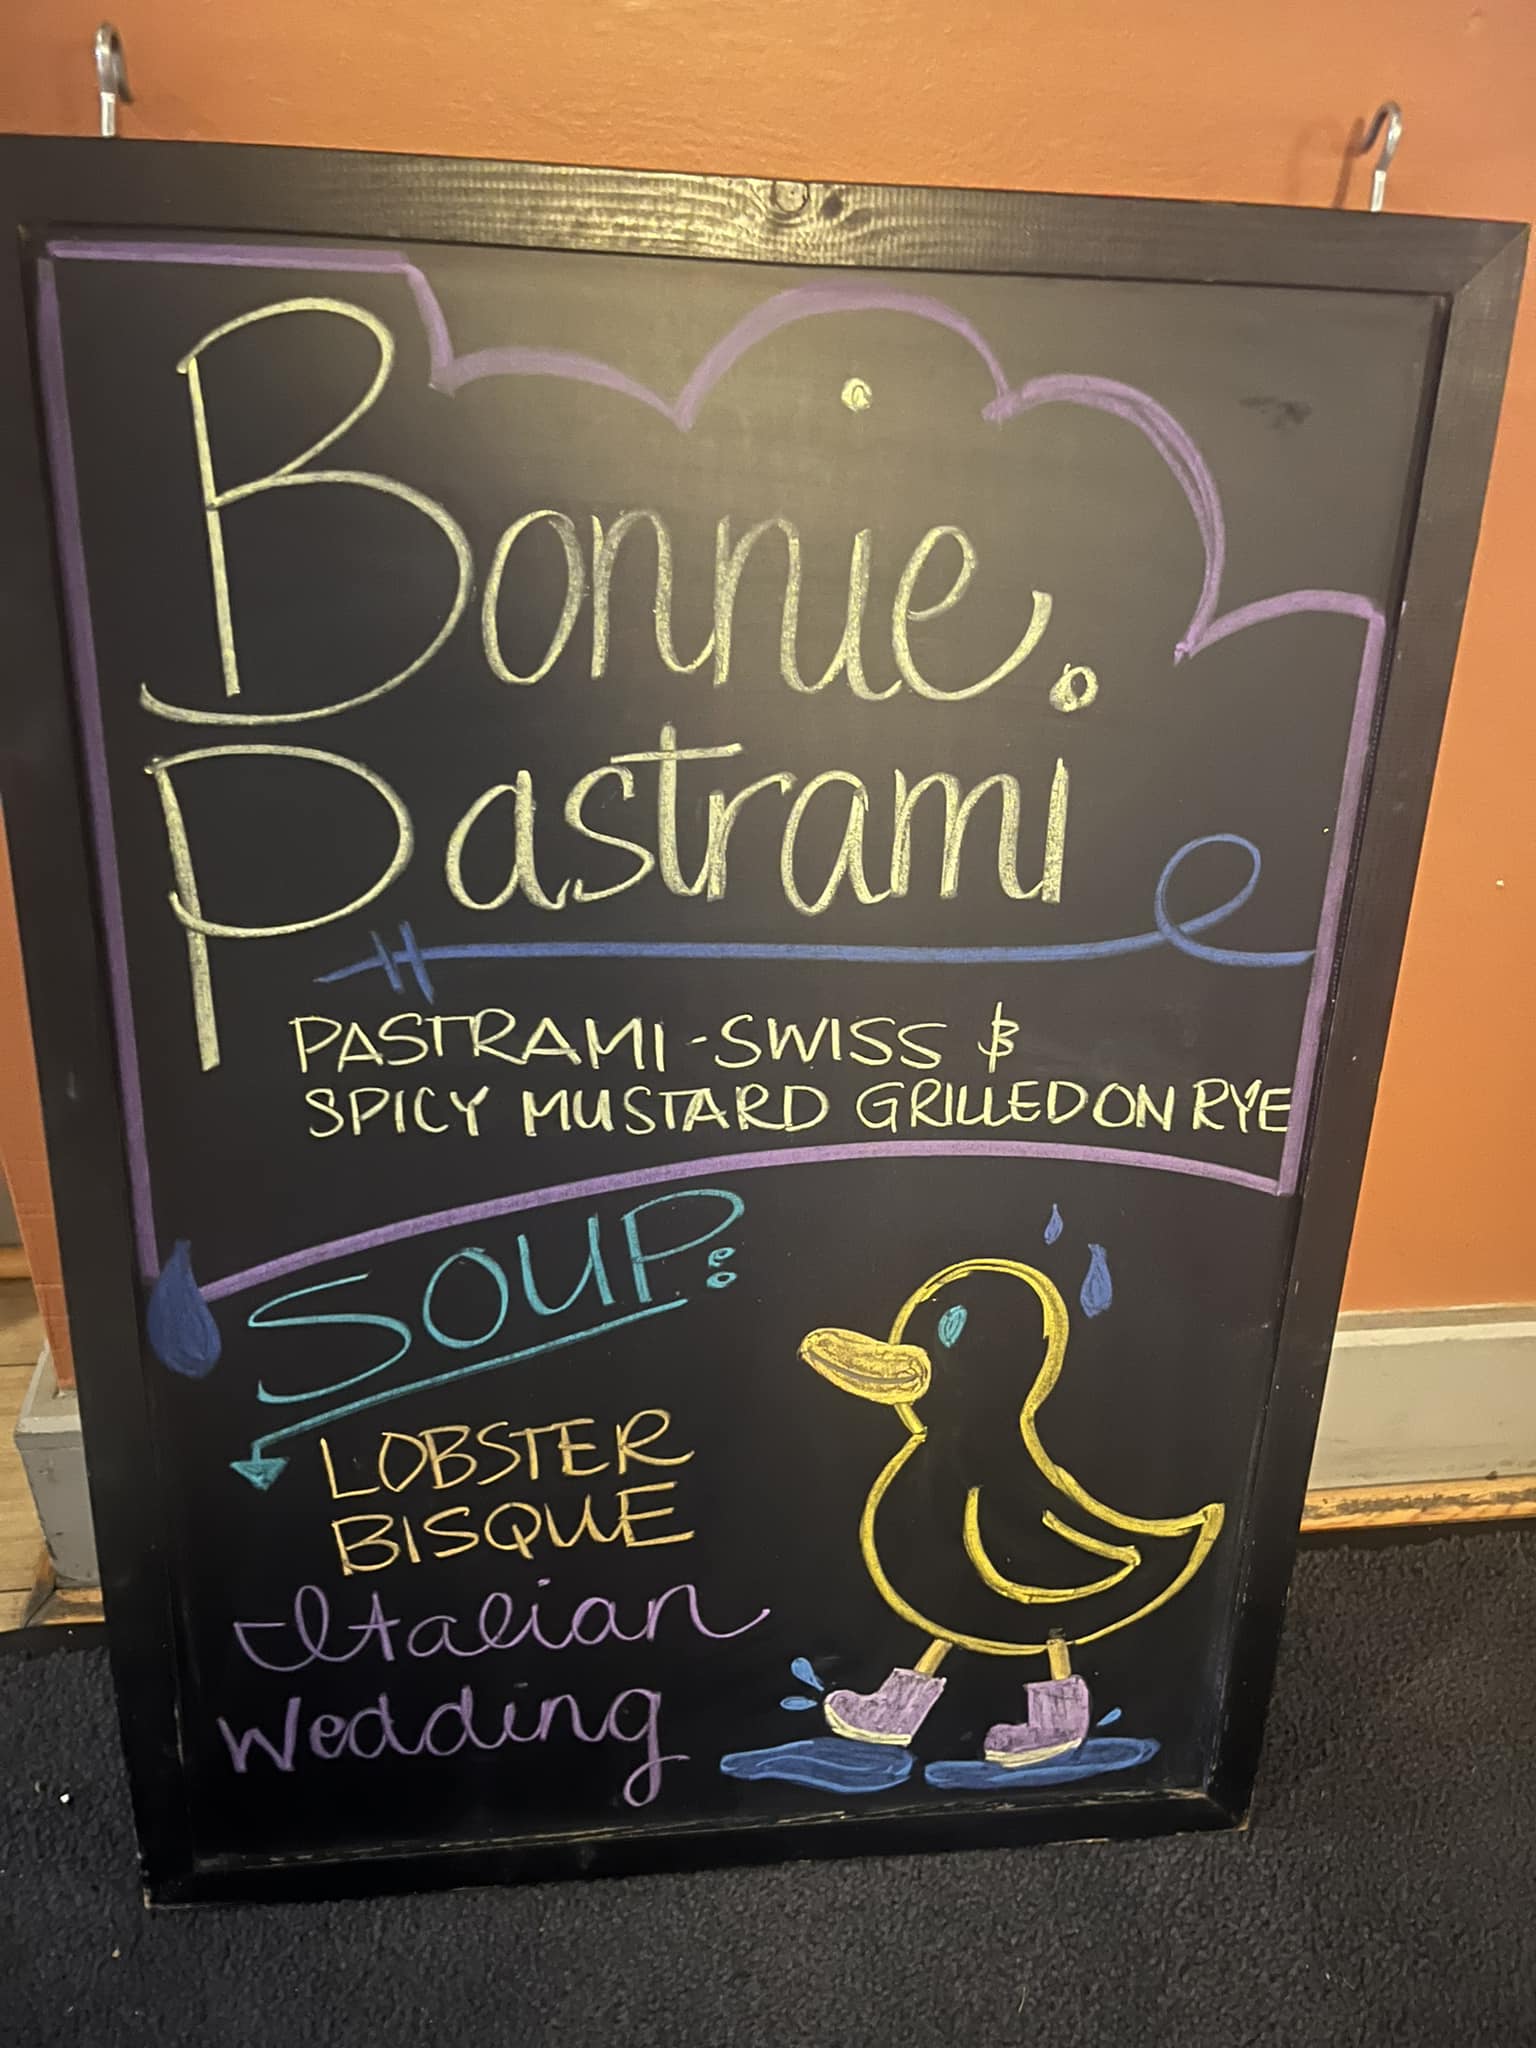 Bonnie.
Pastrami
PASTRAMI - SWISS &
SPICY MUSTARD GRILLED ON RYE
SOUP:
LOBSTER
BISQUE
Italian
Wedding